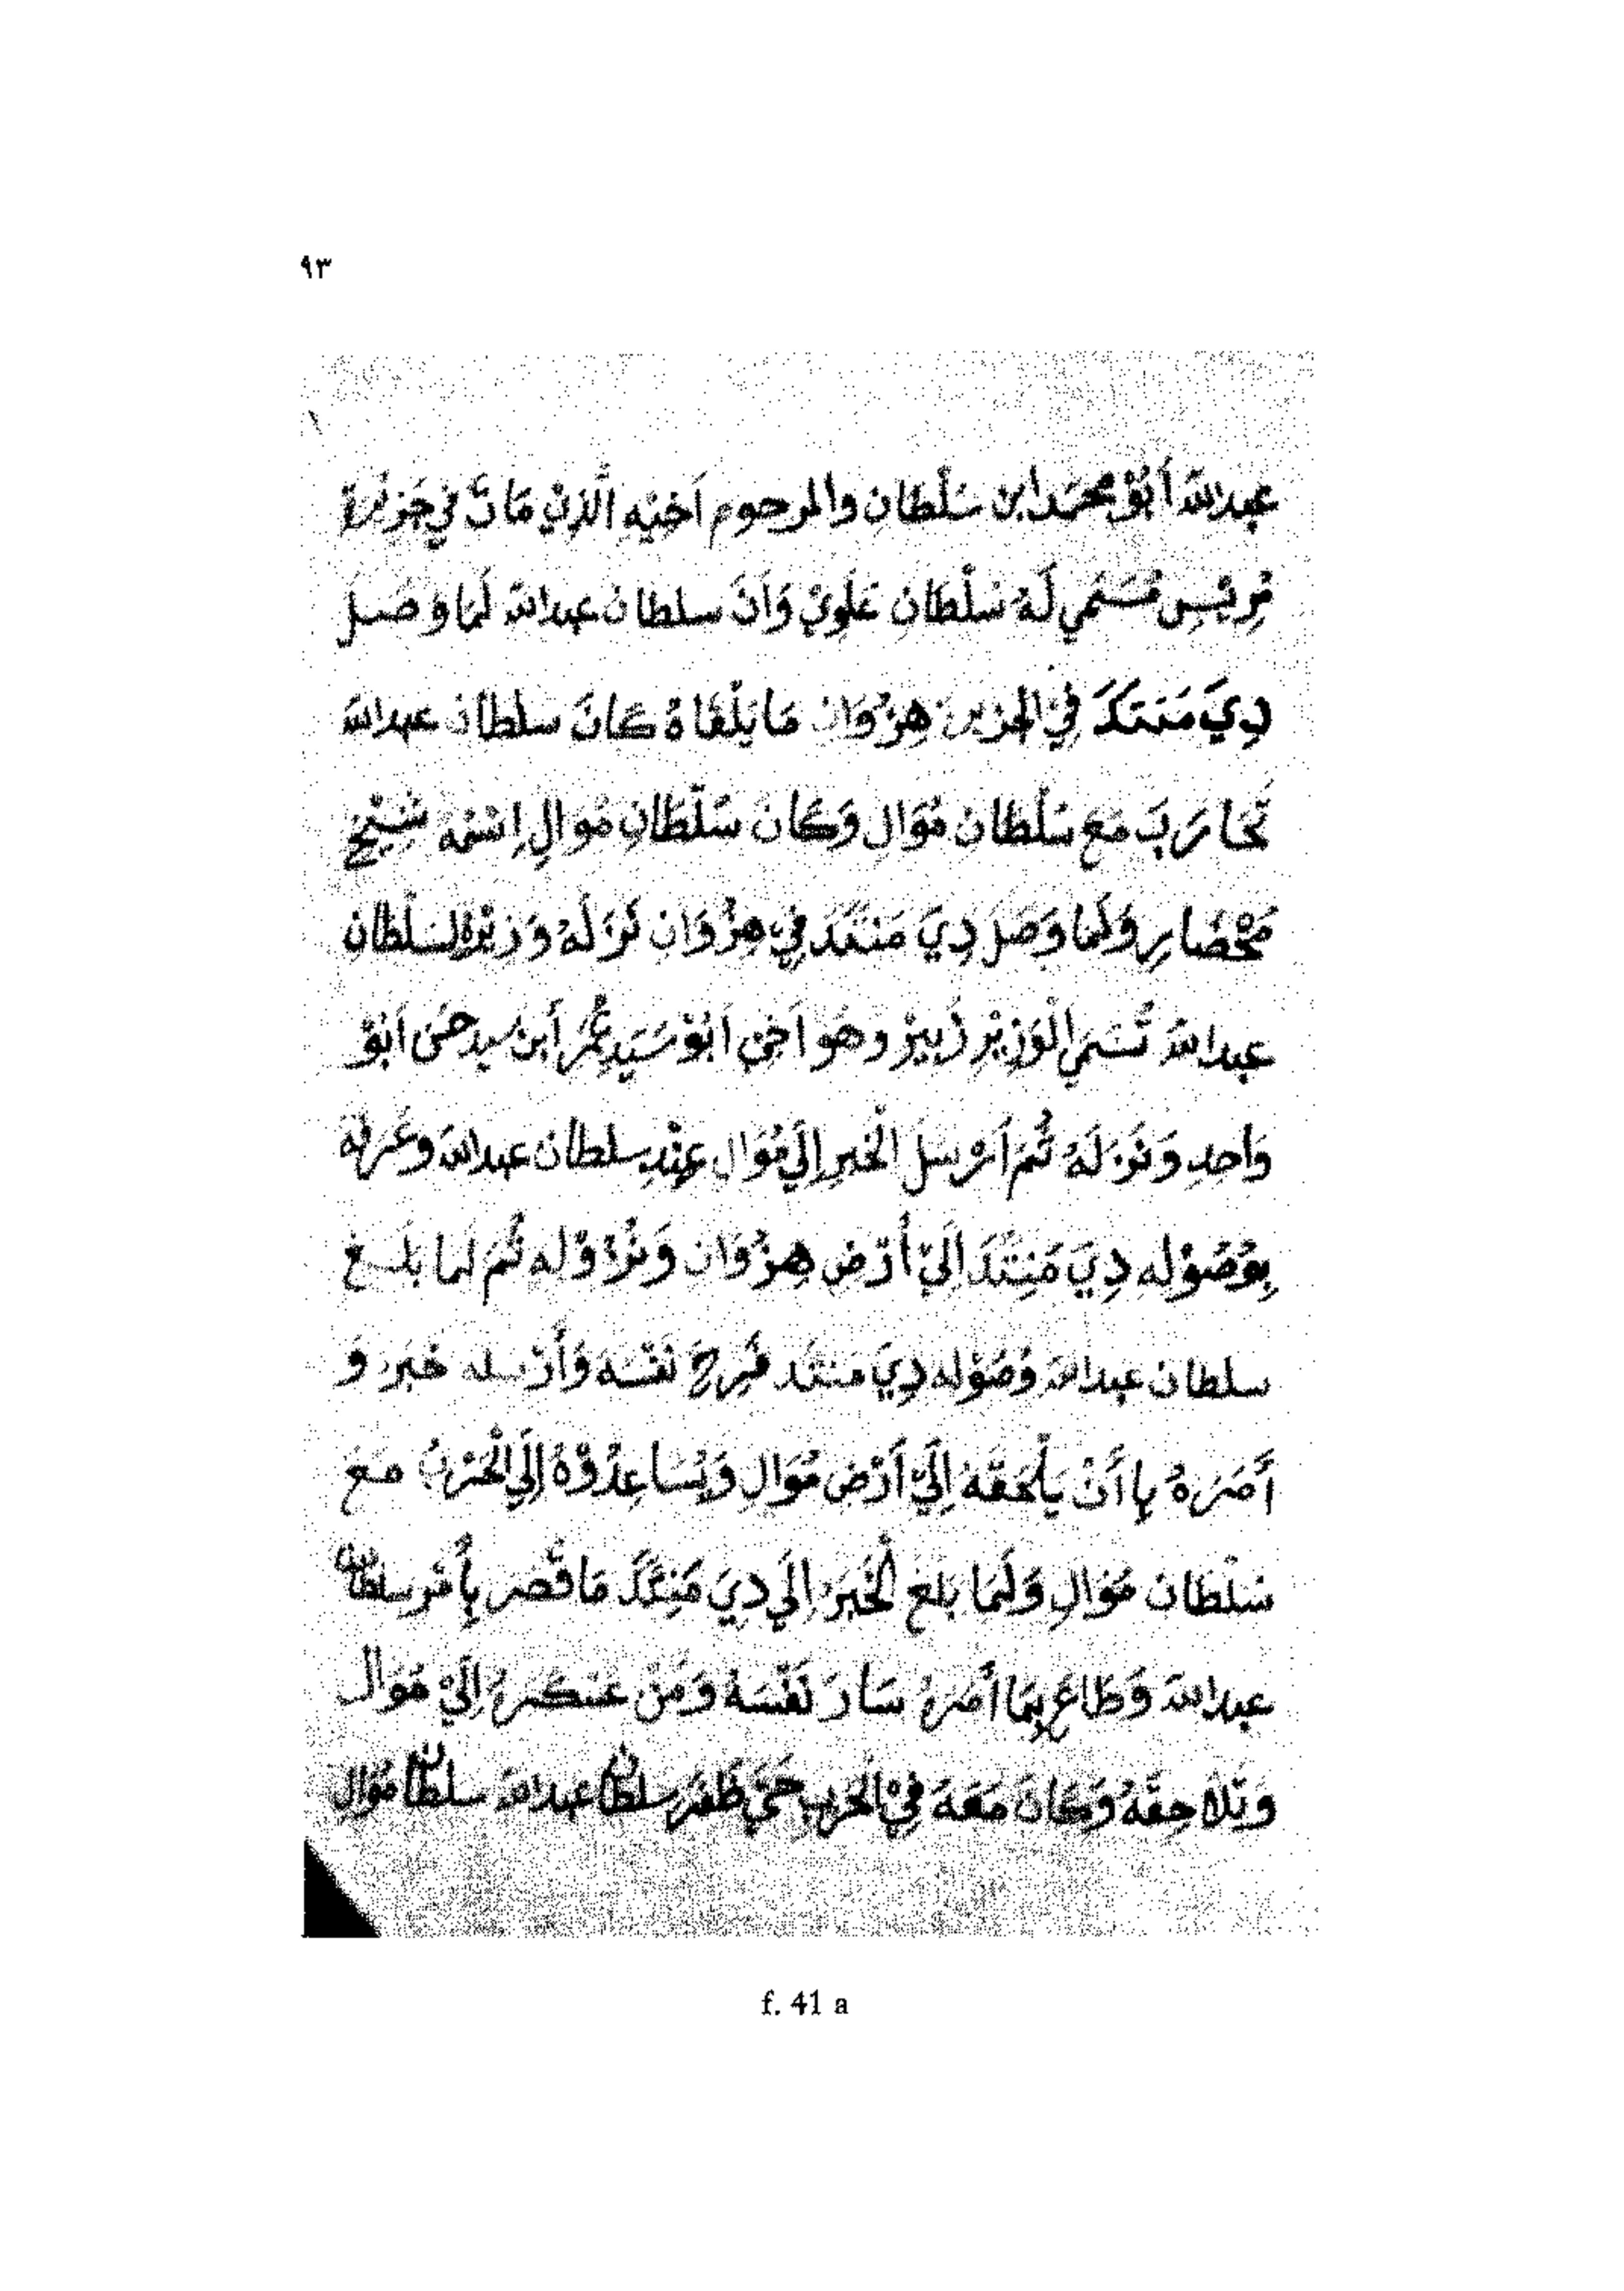 ٩٣
عبدالله أَبُوْ محمّد ابن سَلْطان والمرحوم اَخِيْهِ الَّذِيْ مَاتَ فِي جَزِيْرة
مُرِيْسِ مُسَمِّي لَهُ سُلْطَانِ عَلَوِيْ وَاَنَّ سلطان عبدالله لَمَا وَصَل
دِيَ مَنتكَدَ فِي الجزيرة هِنْزُوَان مَا يَلْقَاهُ كَانَ سلطان عبدالله
تَحَارَبَ مَع سَلْطان مُوَال وَكَانَ سَلْطَانِ مُوَالِ اِسْمُهُ شَيْخ
مَحْضَارِ وَلَما وَصَلَ دِيَ مَنتَكَدَ فِي هِنْزُوَانِ نَزَلَهُ وَزِيْرهُ السَلْطَانِ
عبدالله تُسَمِي الْوَزِيْرِ زُبَيْرْ وهُو اَخِيْ اَبُوْ سَيَدِ عُمَرْ أَبن سيد حسَن اَبُوْ
وَاحِدِ وَنَزَلَهُ ثُمَ اَرْسَلَ الْخَبر اِلَي مُوَال عِنْدِ سلطان عبدالله وعَرفهُ
بِوُصُوْله دِيَ مَنِتَكَدَ اِلَيْ أَرْضِ هِنْزُوَان وَنُزُوْله ثُمَ لَما بَلَغ
سلطان عبدالله وُصُوْله دِيَ منتكد فَرِحَ نَفْسَهُ وَأَرْسله خَبر وَ
أَمَرَهُ بِاأَنْ يَلْحَقَهُ اِلَيْ اَرْض مُوَالِ وَيُسَاعِدُوْهُ اِلَي الْحَرْبُ مَعَ
سُلْطَان مُوَالِ وَلَمَا بَلَغَ الْخَبَرَ اِلَي دِيَ مَنِتكَدَ مَا قَصَر بِأَمْر سلطان
عبدالله وَطَاعَ بِمَا أَمَرَهُ سَارَ نَفْسَهُ وَمَنْ عَسْكَرهُ اِلَيْ مُوَال
وَتَلَاحِقَهُ وَكَانَ مَعَهُ فِيْ الْحَرْبِ حَتَّي ظَفَرَ سلطان عبدالله سلطان مُوَال
f. 41 a